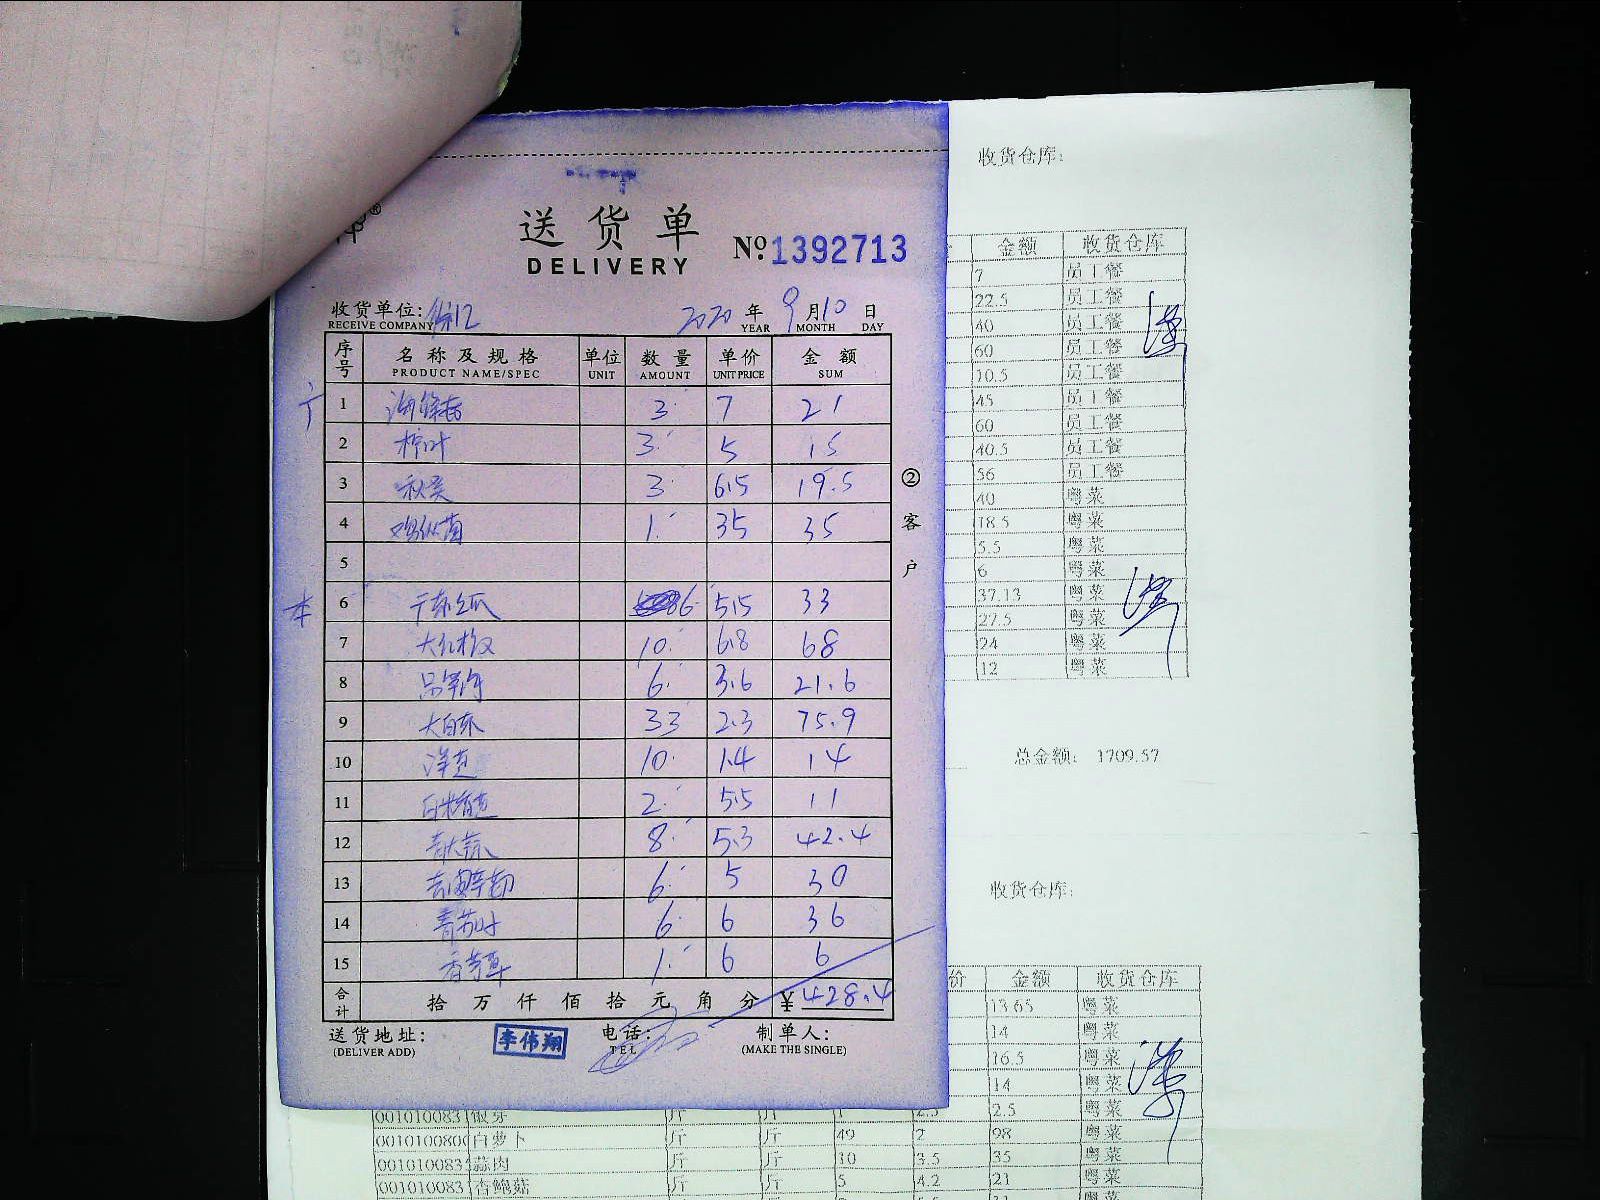 送货单
DELIVERY
Nº:1392713
收货单位:
RECEIVE COMPANY
2020 年 9 月 10 日
YEAR MONTH DAY
序号 名称及规格 单位 数量 单价 金额
PRODUCT NAME/SPEC UNIT AMOUNT UNIT PRICE SUM
1 3 7 21
2 柠叶 3 5 15
3 秋葵 3 6.5 19.5
4 鸡纵菌 1 35 35
5
6 6 5.5 33
7 大红椒 10 6.8 68
8 6 3.6 21.6
9 33 2.3 75.9
10 洋葱 10 1.4 14
11 2 5.5 11
12 8 5.3 42.4
13 6 5 30
14 青苏叶 6 6 36
15 香茅草 1 6 6
合计 拾 万 仟 佰 拾 元 角 分 ¥428.4
送货地址: 李伟翔 电话: 制单人:
(DELIVER ADD) TEL (MAKE THE SINGLE)
②客户
收货仓库:
金额 收货仓库
7 员工餐
22.5 员工餐
40 员工餐
60 员工餐
10.5 员工餐
45 员工餐
60 员工餐
40.5 员工餐
56 员工餐
40 粤菜
18.5 粤菜
5.5 粤菜
6 粤菜
37.13 粤菜
27.5 粤菜
24 粤菜
12 粤菜
总金额: 1709.57
收货仓库:
价 金额 收货仓库
13.65 粤菜
14 粤菜
16.5 粤菜
14 粤菜
001010083 银芽 斤 斤 1 2.5 2.5 粤菜
001010080 白萝卜 斤 斤 49 2 98 粤菜
001010083 蒜肉 斤 斤 10 3.5 35 粤菜
001010083 杏鲍菇 斤 斤 5 4.2 21 粤菜